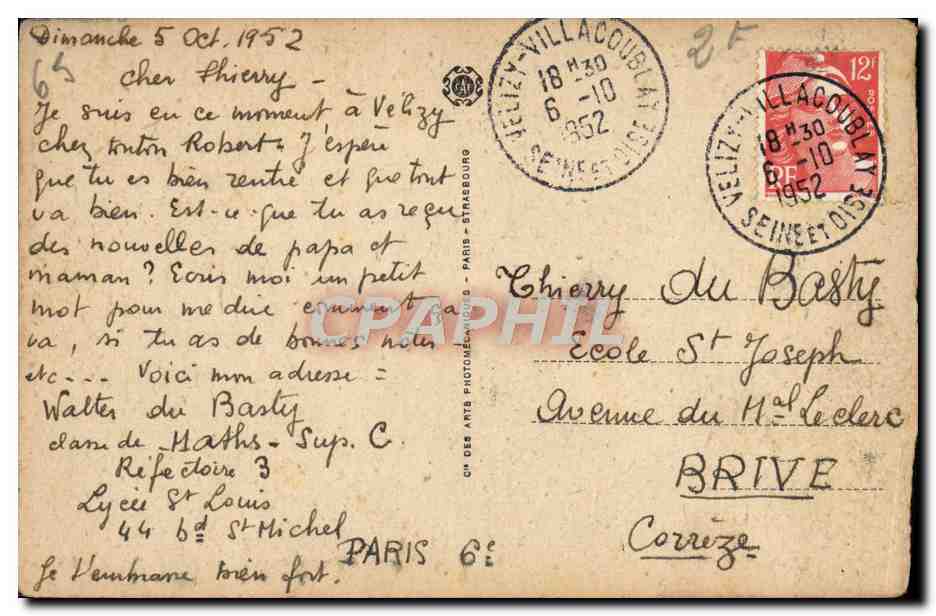 Dimanche 5 Oct. 1952
cher Thierry -
Je suis en ce moment à Vélizy
chez tonton Robert. J'espère
que tu es bien rentré et que tout
va bien. Est-ce que tu as reçu
des nouvelles de papa et
maman? Ecris moi un petit
mot pour me dire comment ça
va, si tu as de bonnes notes -
etc.... Voici mon adresse =
Walter du Basty
classe de Maths-Sup. C
Réfectoire 3
Lycée St Louis
44 bd St Michel
PARIS 6e
Je t'embrasse bien fort.
Cie DES ARTS PHOTOMECANIQUES - PARIS - STRASBOURG
VELIZY-VILLACOUBLAY
18 H 30
6 -10
1952
SEINE ET OISE
2F
12F
RF
VELIZY-VILLACOUBLAY
18 H 30
6 -10
1952
SEINE ET OISE
Thierry du Basty
Ecole St Joseph
Avenue du Mal Leclerc
BRIVE
Corrèze
CPAPHIL